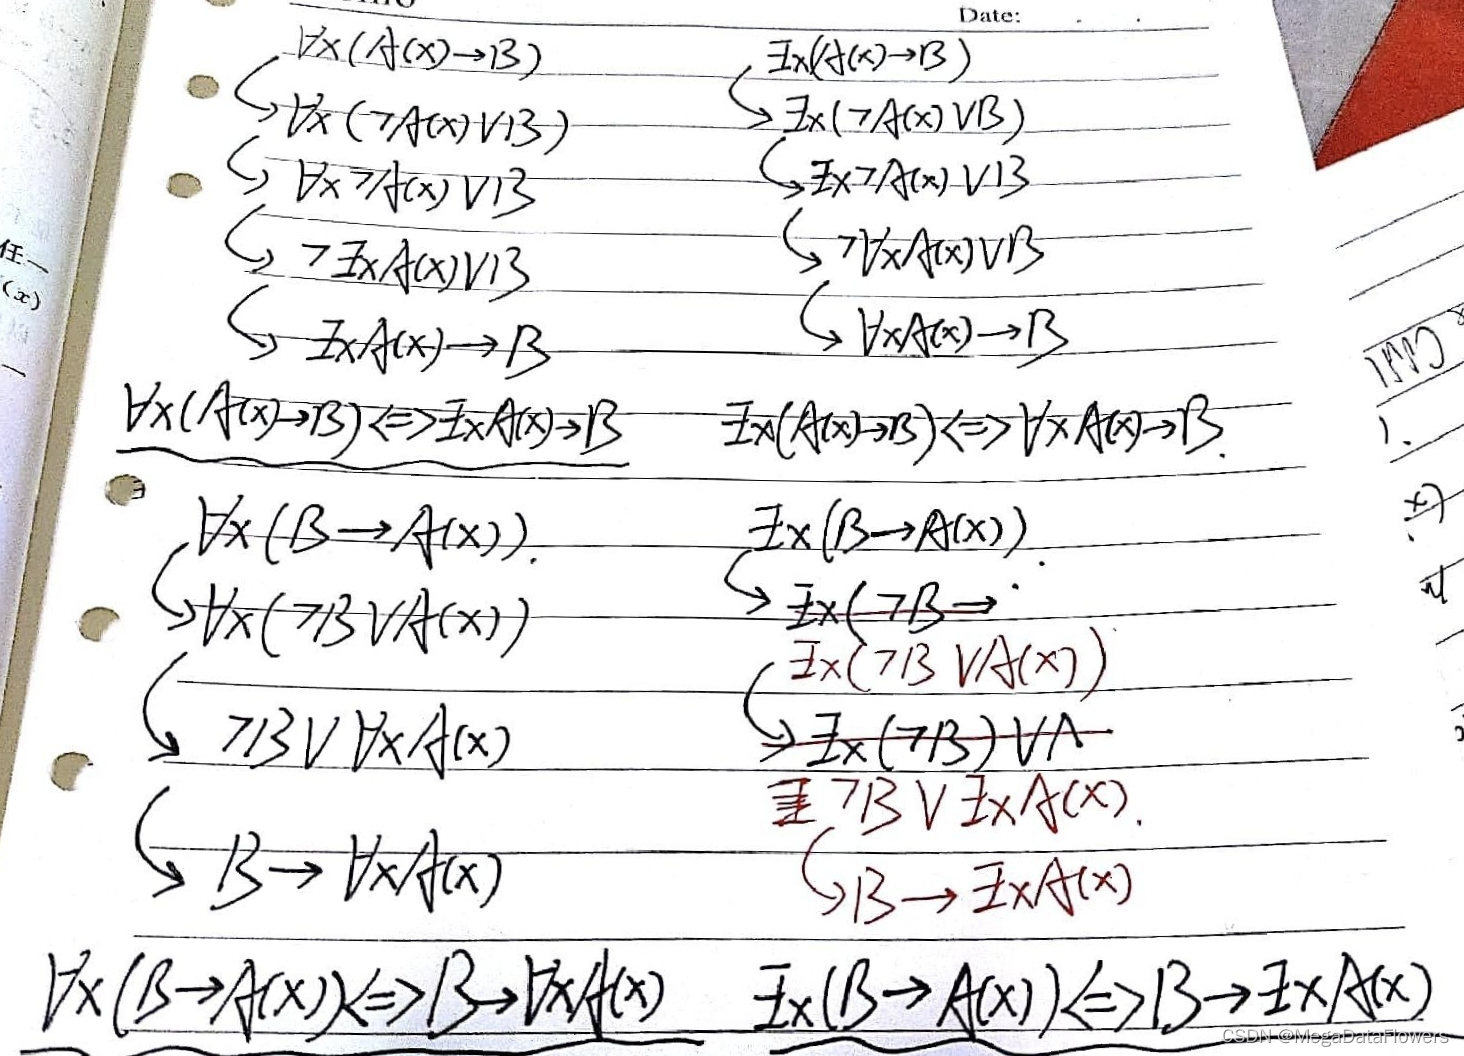 Date:
∀x(A(x)→B)
∀x(¬A(x)∨B)
∀x¬A(x)∨B
¬∃xA(x)∨B
∃xA(x)→B
∀x(A(x)→B)<=>∃xA(x)→B
∃x(A(x)→B)
∃x(¬A(x)∨B)
∃x¬A(x)∨B
¬∀xA(x)∨B
∀xA(x)→B
∃x(A(x)→B)<=>∀xA(x)→B.
∀x(B→A(x)).
∀x(¬B∨A(x))
¬B∨∀xA(x)
B→∀xA(x)
∀x(B→A(x))<=>B→∀xA(x)
∃x(B→A(x))
∃x(¬B→
∃x(¬B∨A(x))
∃x(¬B)∨A
¬B∨∃xA(x).
B→∃xA(x)
∃x(B→A(x))<=>B→∃xA(x)
任一
(x)
1.
CSDN @MegaDataFlowers